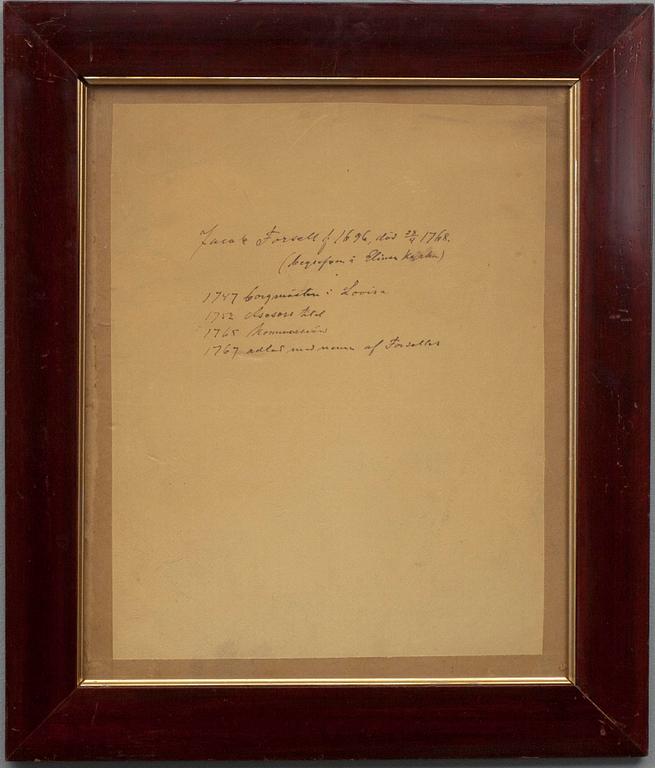 Jacob Forsell f 1696, död 23/4 1768.
(begrafven i Elimä Kyrka)
1747 borgmästare i Lovisa
1752 Assesors titel
1765 Kommerseråd
1767 adlad med namn af Forselles